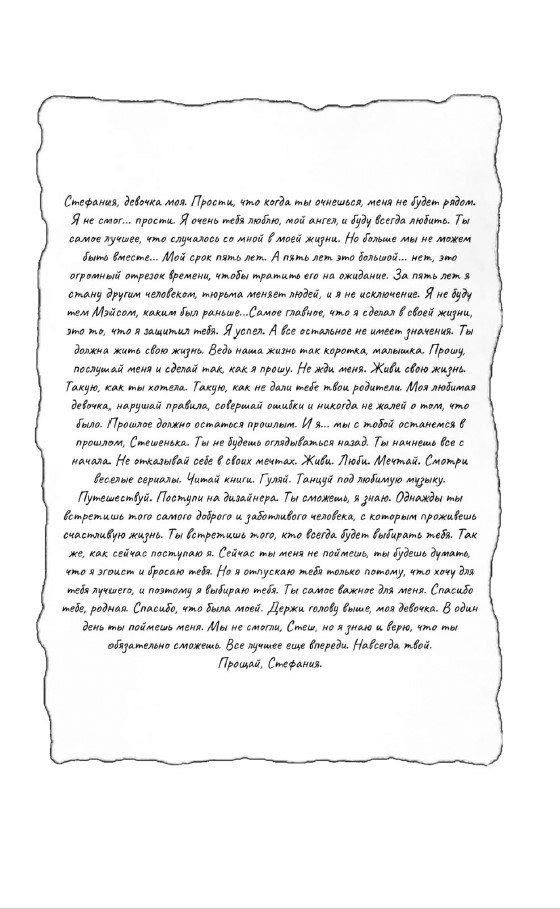 Стефания, девочка моя. Прости, что когда ты очнешься, меня не будет рядом.
Я не смог... прости. Я очень тебя люблю, мой ангел, и буду всегда любить. Ты
самое лучшее, что случалось со мной в моей жизни. Но больше мы не можем
быть вместе... Мой срок пять лет. А пять лет это большой... нет, это
огромный отрезок времени, чтобы тратить его на ожидание. За пять лет я
стану другим человеком, тюрьма меняет людей, и я не исключение. Я не буду
тем Мэйсом, каким был раньше...Самое главное, что я сделал в своей жизни,
это то, что я защитил тебя. Я успел. А все остальное не имеет значения. Ты
должна жить свою жизнь. Ведь наша жизнь так коротка, малышка. Прошу,
послушай меня и сделай так, как я прошу. Не жди меня. Живи свою жизнь.
Такую, как ты хотела. Такую, как не дали тебе твои родители. Моя любимая
девочка, нарушай правила, совершай ошибки и никогда не жалей о том, что
было. Прошлое должно остаться прошлым. И я... мы с тобой останемся в
прошлом, Стешенька. Ты не будешь оглядываться назад. Ты начнешь все с
начала. Не отказывай себе в своих мечтах. Живи. Люби. Мечтай. Смотри
веселые сериалы. Читай книги. Гуляй. Танцуй под любимую музыку.
Путешествуй. Поступи на дизайнера. Ты сможешь, я знаю. Однажды ты
встретишь того самого доброго и заботливого человека, с которым проживешь
счастливую жизнь. Ты встретишь того, кто всегда будет выбирать тебя. Так
же, как сейчас поступаю я. Сейчас ты меня не поймешь, ты будешь думать,
что я эгоист и бросаю тебя. Но я отпускаю тебя только потому, что хочу для
тебя лучшего, и поэтому я выбираю тебя. Ты самое важное для меня. Спасибо
тебе, родная. Спасибо, что была моей. Держи голову выше, моя девочка. В один
день ты поймешь меня. Мы не смогли, Стеш, но я знаю и верю, что ты
обязательно сможешь. Все лучшее еще впереди. Навсегда твой.
Прощай, Стефания.